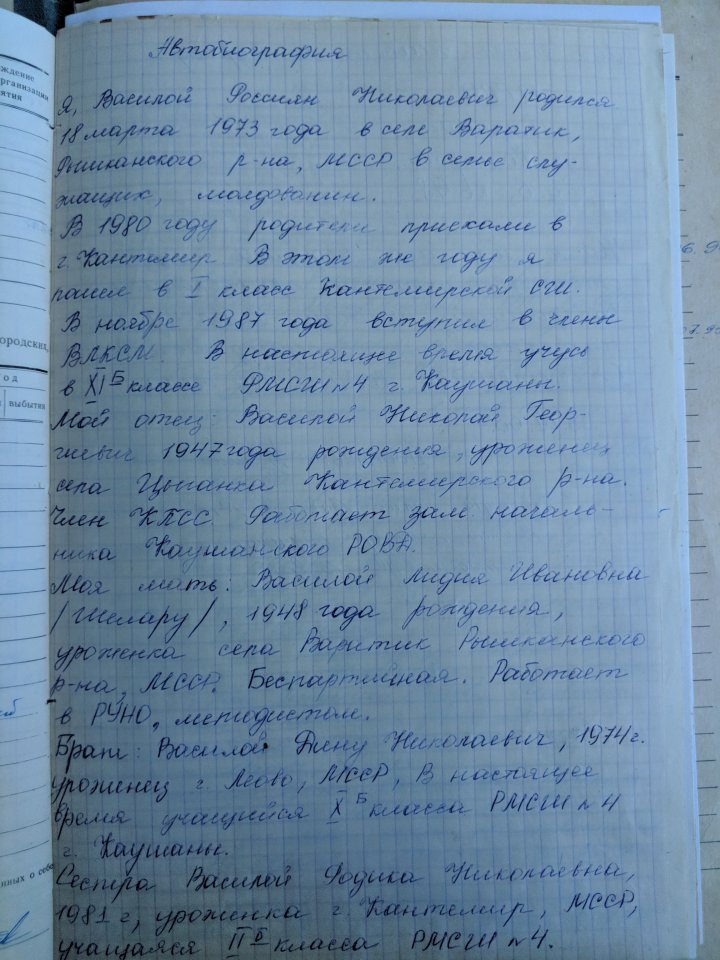 Автобиография
Я, Василой Россиян Николаевич родился
18 марта 1973 года в селе Варатик,
Рышканского р-на, МССР в семье слу-
жащих, молдованин.
В 1980 году родители приехали в
г. Кантемир В этом же году я
пошел в I класс Кантемирской СШ.
В ноябре 1987 года вступил в члены
ВЛКСМ. В настоящее время учусь
в XI Б классе РМСШ №4 г. Каушаны.
Мой отец: Василой Николай Геор-
гиевич 1947 года рождения, уроженец
села Цыганка Кантемирского р-на.
Член КПСС Работает зам. началь-
ника Каушанского РОВД.
Моя мать: Василой Лидия Ивановна
/Шелару/, 1948 года рождения,
уроженка села Варатик Рышканского
р-на, МССР. Беспартийная. Работает
в РУНО, методистом.
Брат: Василой Дину Николаевич, 1974 г.
уроженец г. Леово, МССР, В настоящее
время учащийся X Б класса РМСШ №4
г. Каушаны.
Сестра Василой Родика Николаевна,
1981 г, уроженка г. Кантемир, МССР,
учащаяся II класса РМСШ №4.
ждение
рганизации
ятия
ородских,
од
выбытия
нных о себе